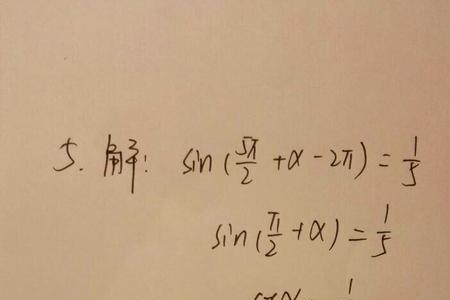 5. 解: sin(5π/2 + α - 2π) = 1/5
sin(π/2 + α) = 1/5